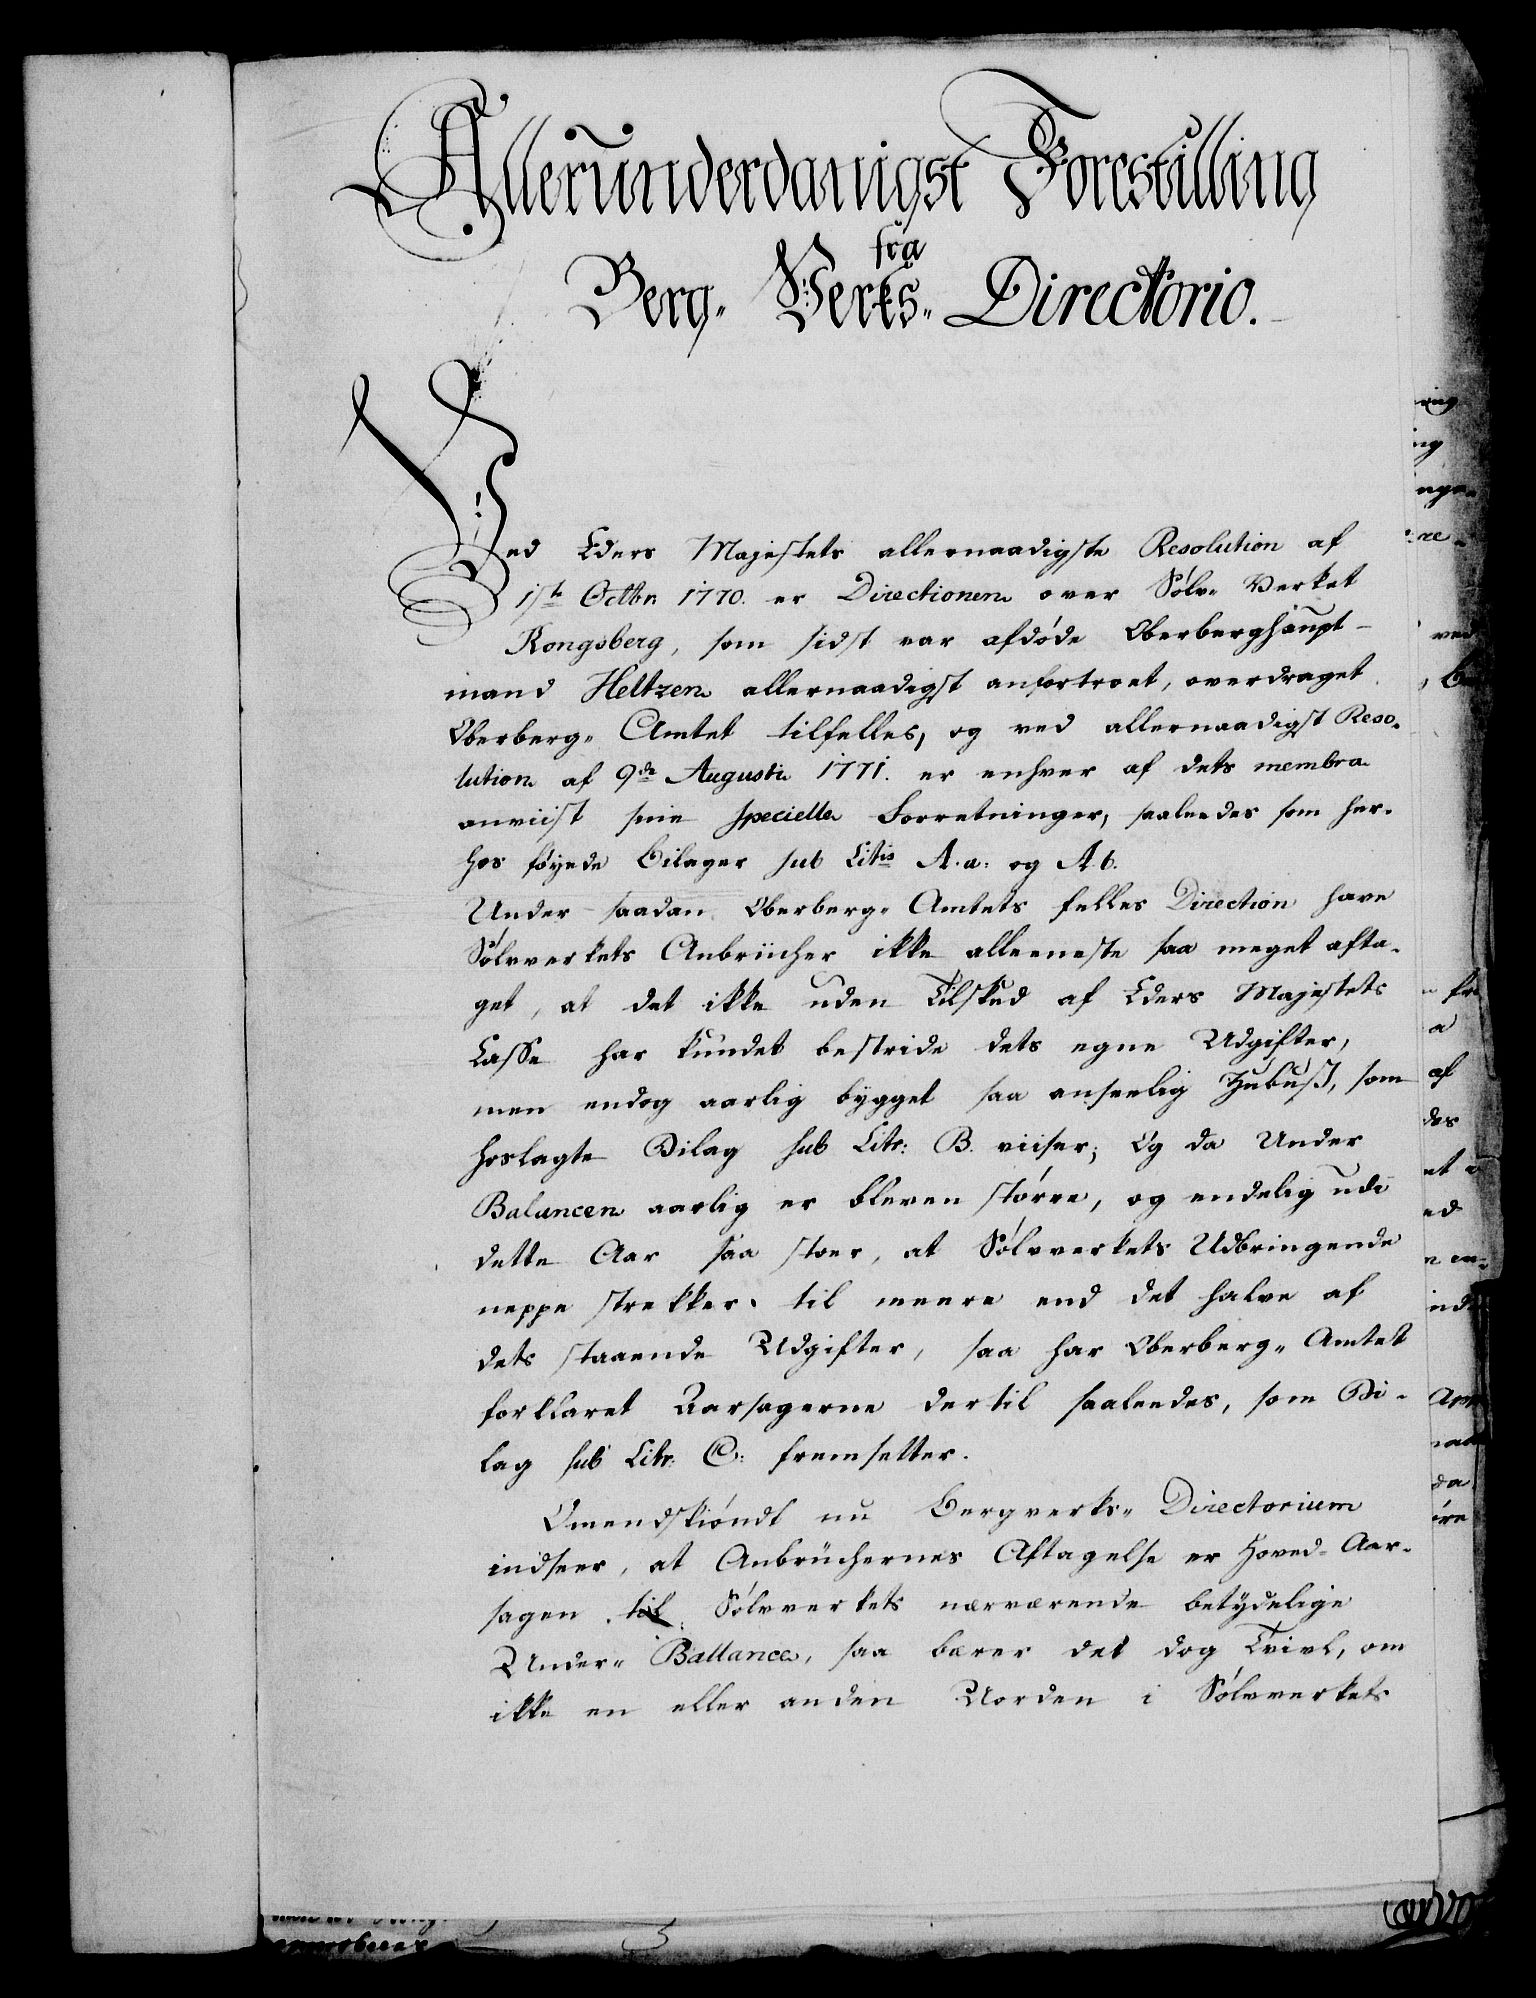 Allerunderdanigst Forestilling
fra
Berg- Verks- Directorio.
Ved Eders Majestets allernaadigste Resolution af
1ste Octbr 1770. er Directionen over Sølv- Verket
Kongsberg, som sidst var afdøde Oberberghaupt-
mand Heltzen allernaadigst anfortroet, overdraget
Oberberg- Amtet tilfelles, og ved allernaadigst Reso-
lution af 9de Augusti 1771. er enhver af dets membra
anviist sine specielle Forretninger, saaledes som her-
hos føyede Bilager sub Litis A.a. og A.b.
Under saadan Oberberg- Amtets felles Direction have
Sølvverkets Anbrücher ikke alleeneste saa meget afta-
get, at det ikke uden Tilskud af Eders Majestets
Casse har kundet bestride dets egne Udgifter,
men endog aarlig bygget saa anseelig Zubuß, som
hoslagte Bilag sub Litr: B. viiser; Og da Under
Balancen aarlig er bleven større, og endelig udi
dette Aar saa stoer, at Sølvverkets Udbringende
neppe strekker til meere end det halve af
dets staaende Udgifter, saa har Oberberg- Amtet
forklaret Aarsagerne dertil saaledes, som Bi-
lag sub Litr: C: fremsetter.
Omendskiøndt nu Bergverks- Directorium
indseer, at Anbrüchernes Aftagelse er Hoved- Aar-
sagen til Sølvverkets nærværende betydelige
Under- Ballance, saa bærer det dog Tvivl, om
ikke en eller anden Uorden i Sølvverkets